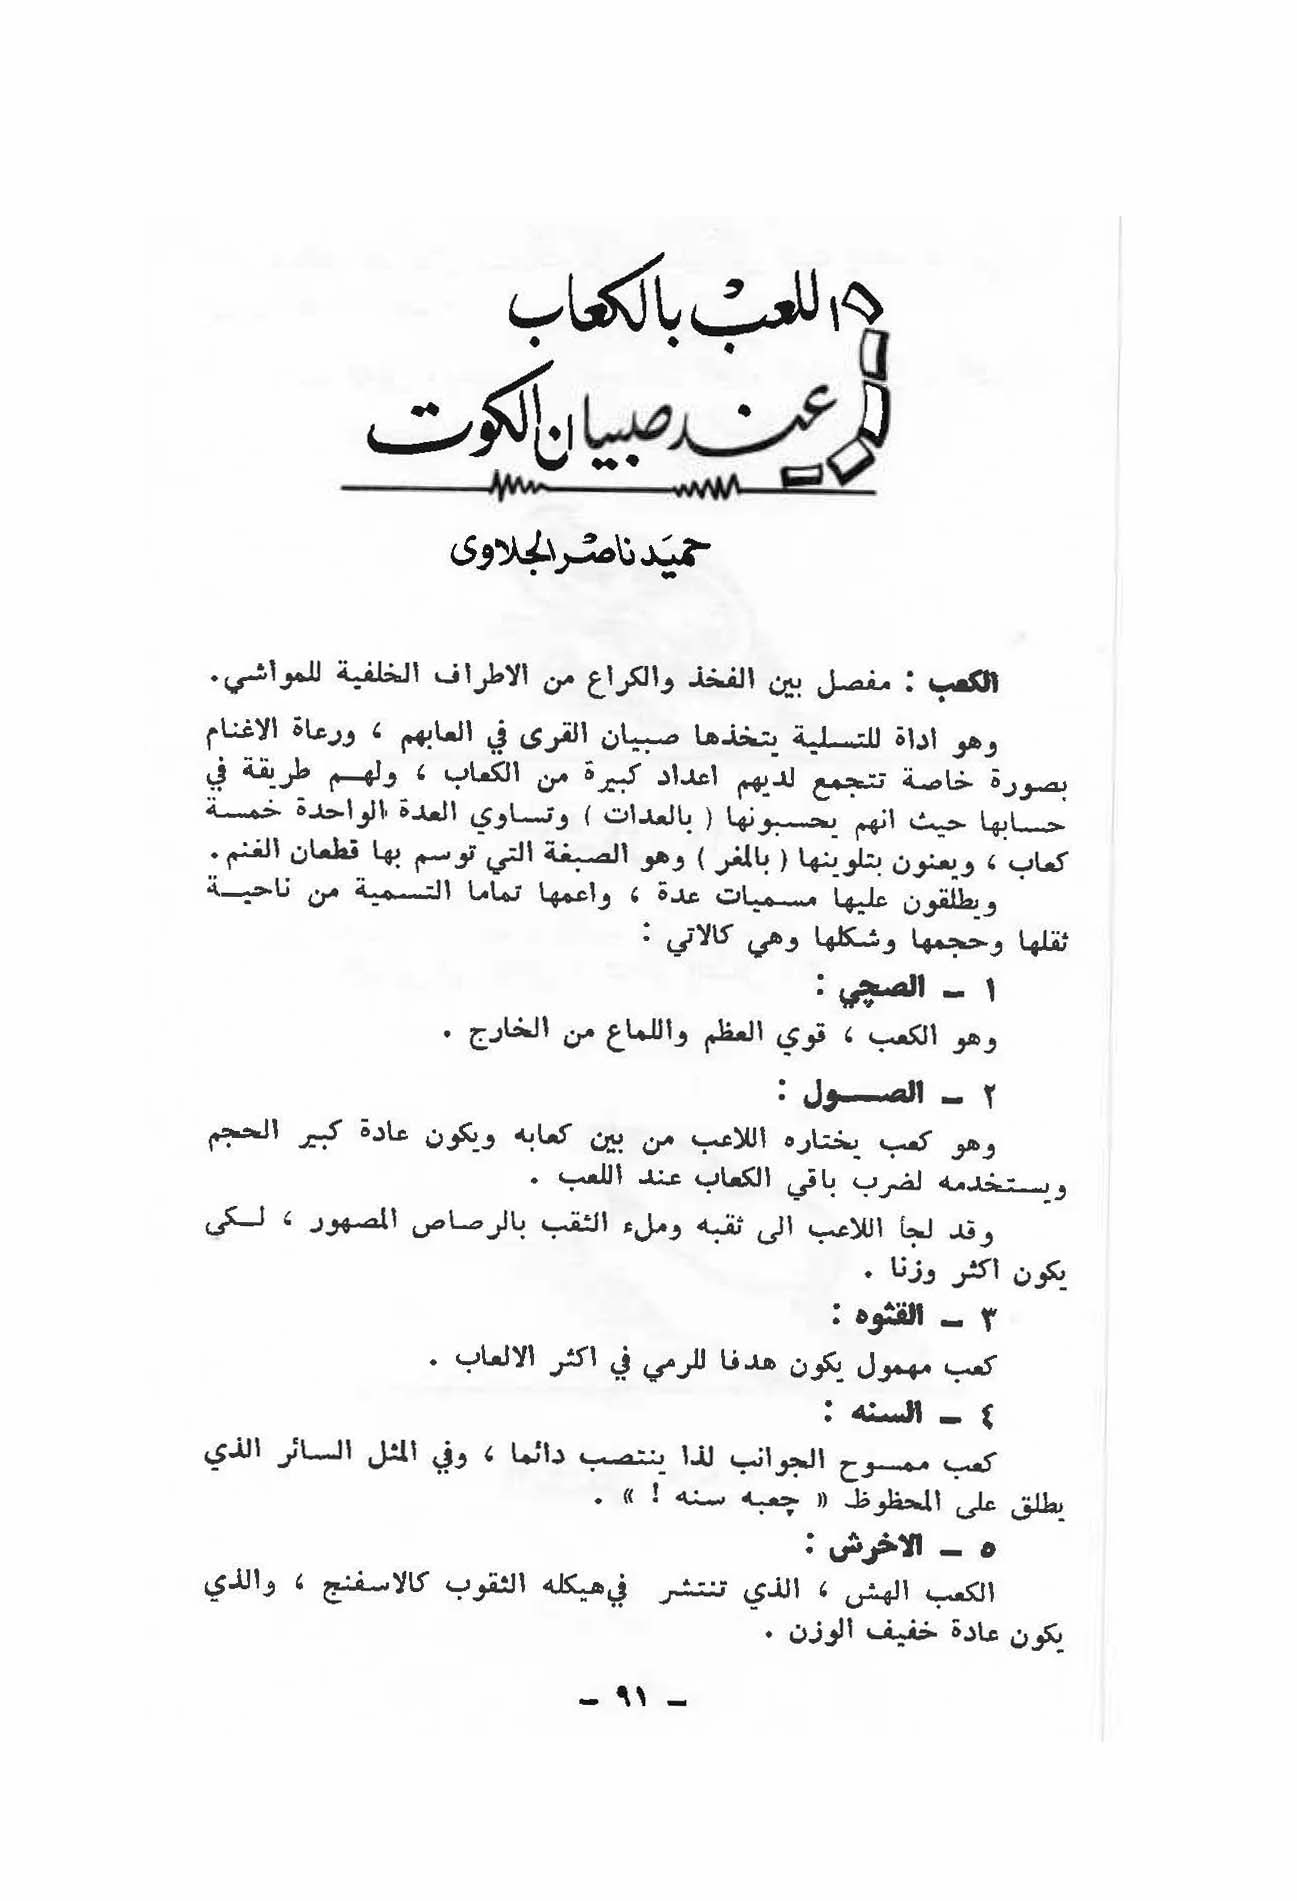 اللعب بالكعاب
عند صبيان الكوت
حميد ناصر الجلاوى
الكعب : مفصل بين الفخذ والكراع من الاطراف الخلفية للمواشي.
وهو اداة للتسلية يتخذها صبيان القرى في العابهم ، ورعاة الاغنام
بصورة خاصة تتجمع لديهم اعداد كبيرة من الكعاب ، ولهـم طريقة في
حسابها حيث انهم يحسبونها ( بالعدات ) وتساوي العدة الواحدة خمسـة
كعاب ، ويعنون بتلوينها ( بالمغر ) وهو الصبغة التي توسم بها قطعان الغنم.
ويطلقون عليها مسميات عدة ، واعمها تماما التسمية من ناحيـة
ثقلها وحجمها وشكلها وهي كالاتي :
١ ــ الصچي :
وهو الكعب ، قوي العظم واللماع من الخارج .
٢ ــ الصـــول :
وهو كعب يختاره اللاعب من بين كعابه ويكون عادة كبير الحجم
ويستخدمه لضرب باقي الكعاب عند اللعب .
وقد لجأ اللاعب الى ثقبه وملء الثقب بالرصاص المصهور ، لـكي
يكون اكثر وزنا .
٣ ــ القثوه :
كعب مهمول يكون هدفا للرمي في اكثر الالعاب .
٤ ــ السنه :
كعب ممسوح الجوانب لذا ينتصب دائما ، وفي المثل السائر الذي
يطلق على المحظوظ « چعبه سنه ! » .
٥ ــ الاخرش :
الكعب الهش ، الذي تنتشر في هيكله الثقوب كالاسفنج ، والذي
يكون عادة خفيف الوزن .
ــ ٩١ ــ